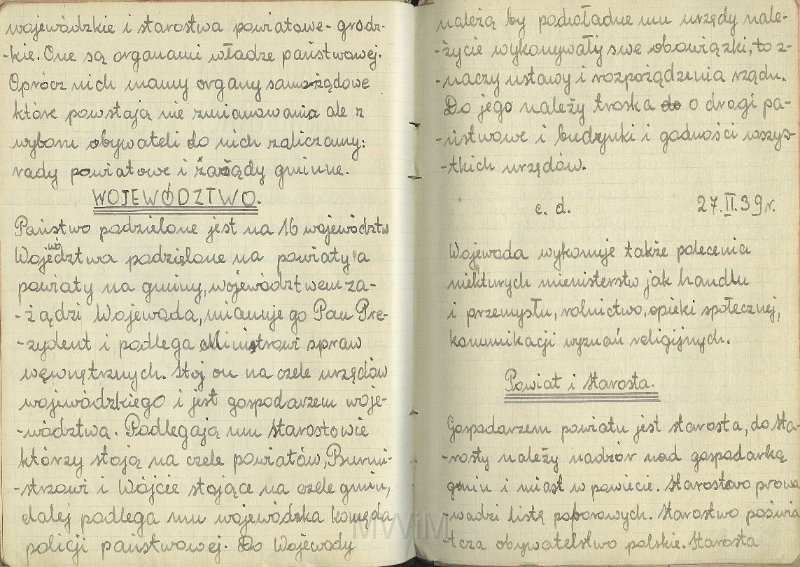 wojewódzkie i starostwa powiatowe-grodz-
-kie. One są organami władze państwowej.
Oprócz nich mamy organy samorządowe
które powstają nie zmianowania ale z
wyboru obywateli do nich zaliczamy:
rady powiatowe i zarządy gminne.
WOJEWÓDZTWO.
Państwo podzielone jest na 16 województw
Województwa podzielone na powiaty a
powiaty na gminy, województwem za-
-żądzi Wojewoda, mianuje go Pan Pre-
-zydent i podlega Ministrowi spraw
węwnętrznych. Stoj on na czele urzędów
wojewódzkiego i jest gospodarzem woje-
-wództwa. Podlegają mu starostowie
którzy stoją na czele powiatów, Burmi-
-strzowi i Wójcie stojące na czele gmin,
dalej podlega mu wojewódzka komęda
policji państwowej. Do Wojewody
należą by podwładne mu urzędy nale-
-życie wykonywały swe obowiązki, to z-
-naczy ustawy i rozpożądzenia rządu.
Do jego należy troska do o drogi pa-
-ństwowe i budynki i godności wszys-
-tkich urzędów.
c. d. 27.II.39 r.
Wojewoda wykonuje także polecenia
niekturych mienisterstw jak handlu
i przemysłu, rolnictwo, opieki społecznej,
komunikacji wyznań religijnych.
Powiat i Starosta.
Gospodarzem powiatu jest starosta, do sta-
-rosty należy nadzór nad gospodarką
gmin i miast w powiecie. Starostwo prowa
-wadzi listę poborowych. Starostwo poświa
-tcza obywatelstwo polskie. Starosta
MWiM